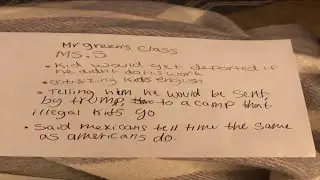 Mr greens class
MS. S
• Kid would get deported if
he didnt do his work
• critisizing kids english
• Telling him he would be sent
by trump, to a camp that
illegal kids go
• Said mexicans tell time the same
as americans do.